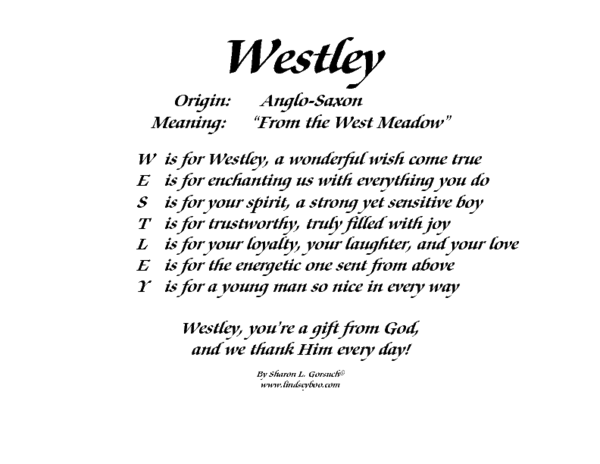 Westley
Origin: Anglo-Saxon
Meaning: "From the West Meadow"
W is for Westley, a wonderful wish come true
E is for enchanting us with everything you do
S is for your spirit, a strong yet sensitive boy
T is for trustworthy, truly filled with joy
L is for your loyalty, your laughter, and your love
E is for the energetic one sent from above
Y is for a young man so nice in every way
Westley, you're a gift from God,
and we thank Him every day!
By Sharon L. Gorsuch©
www.lindseyboo.com